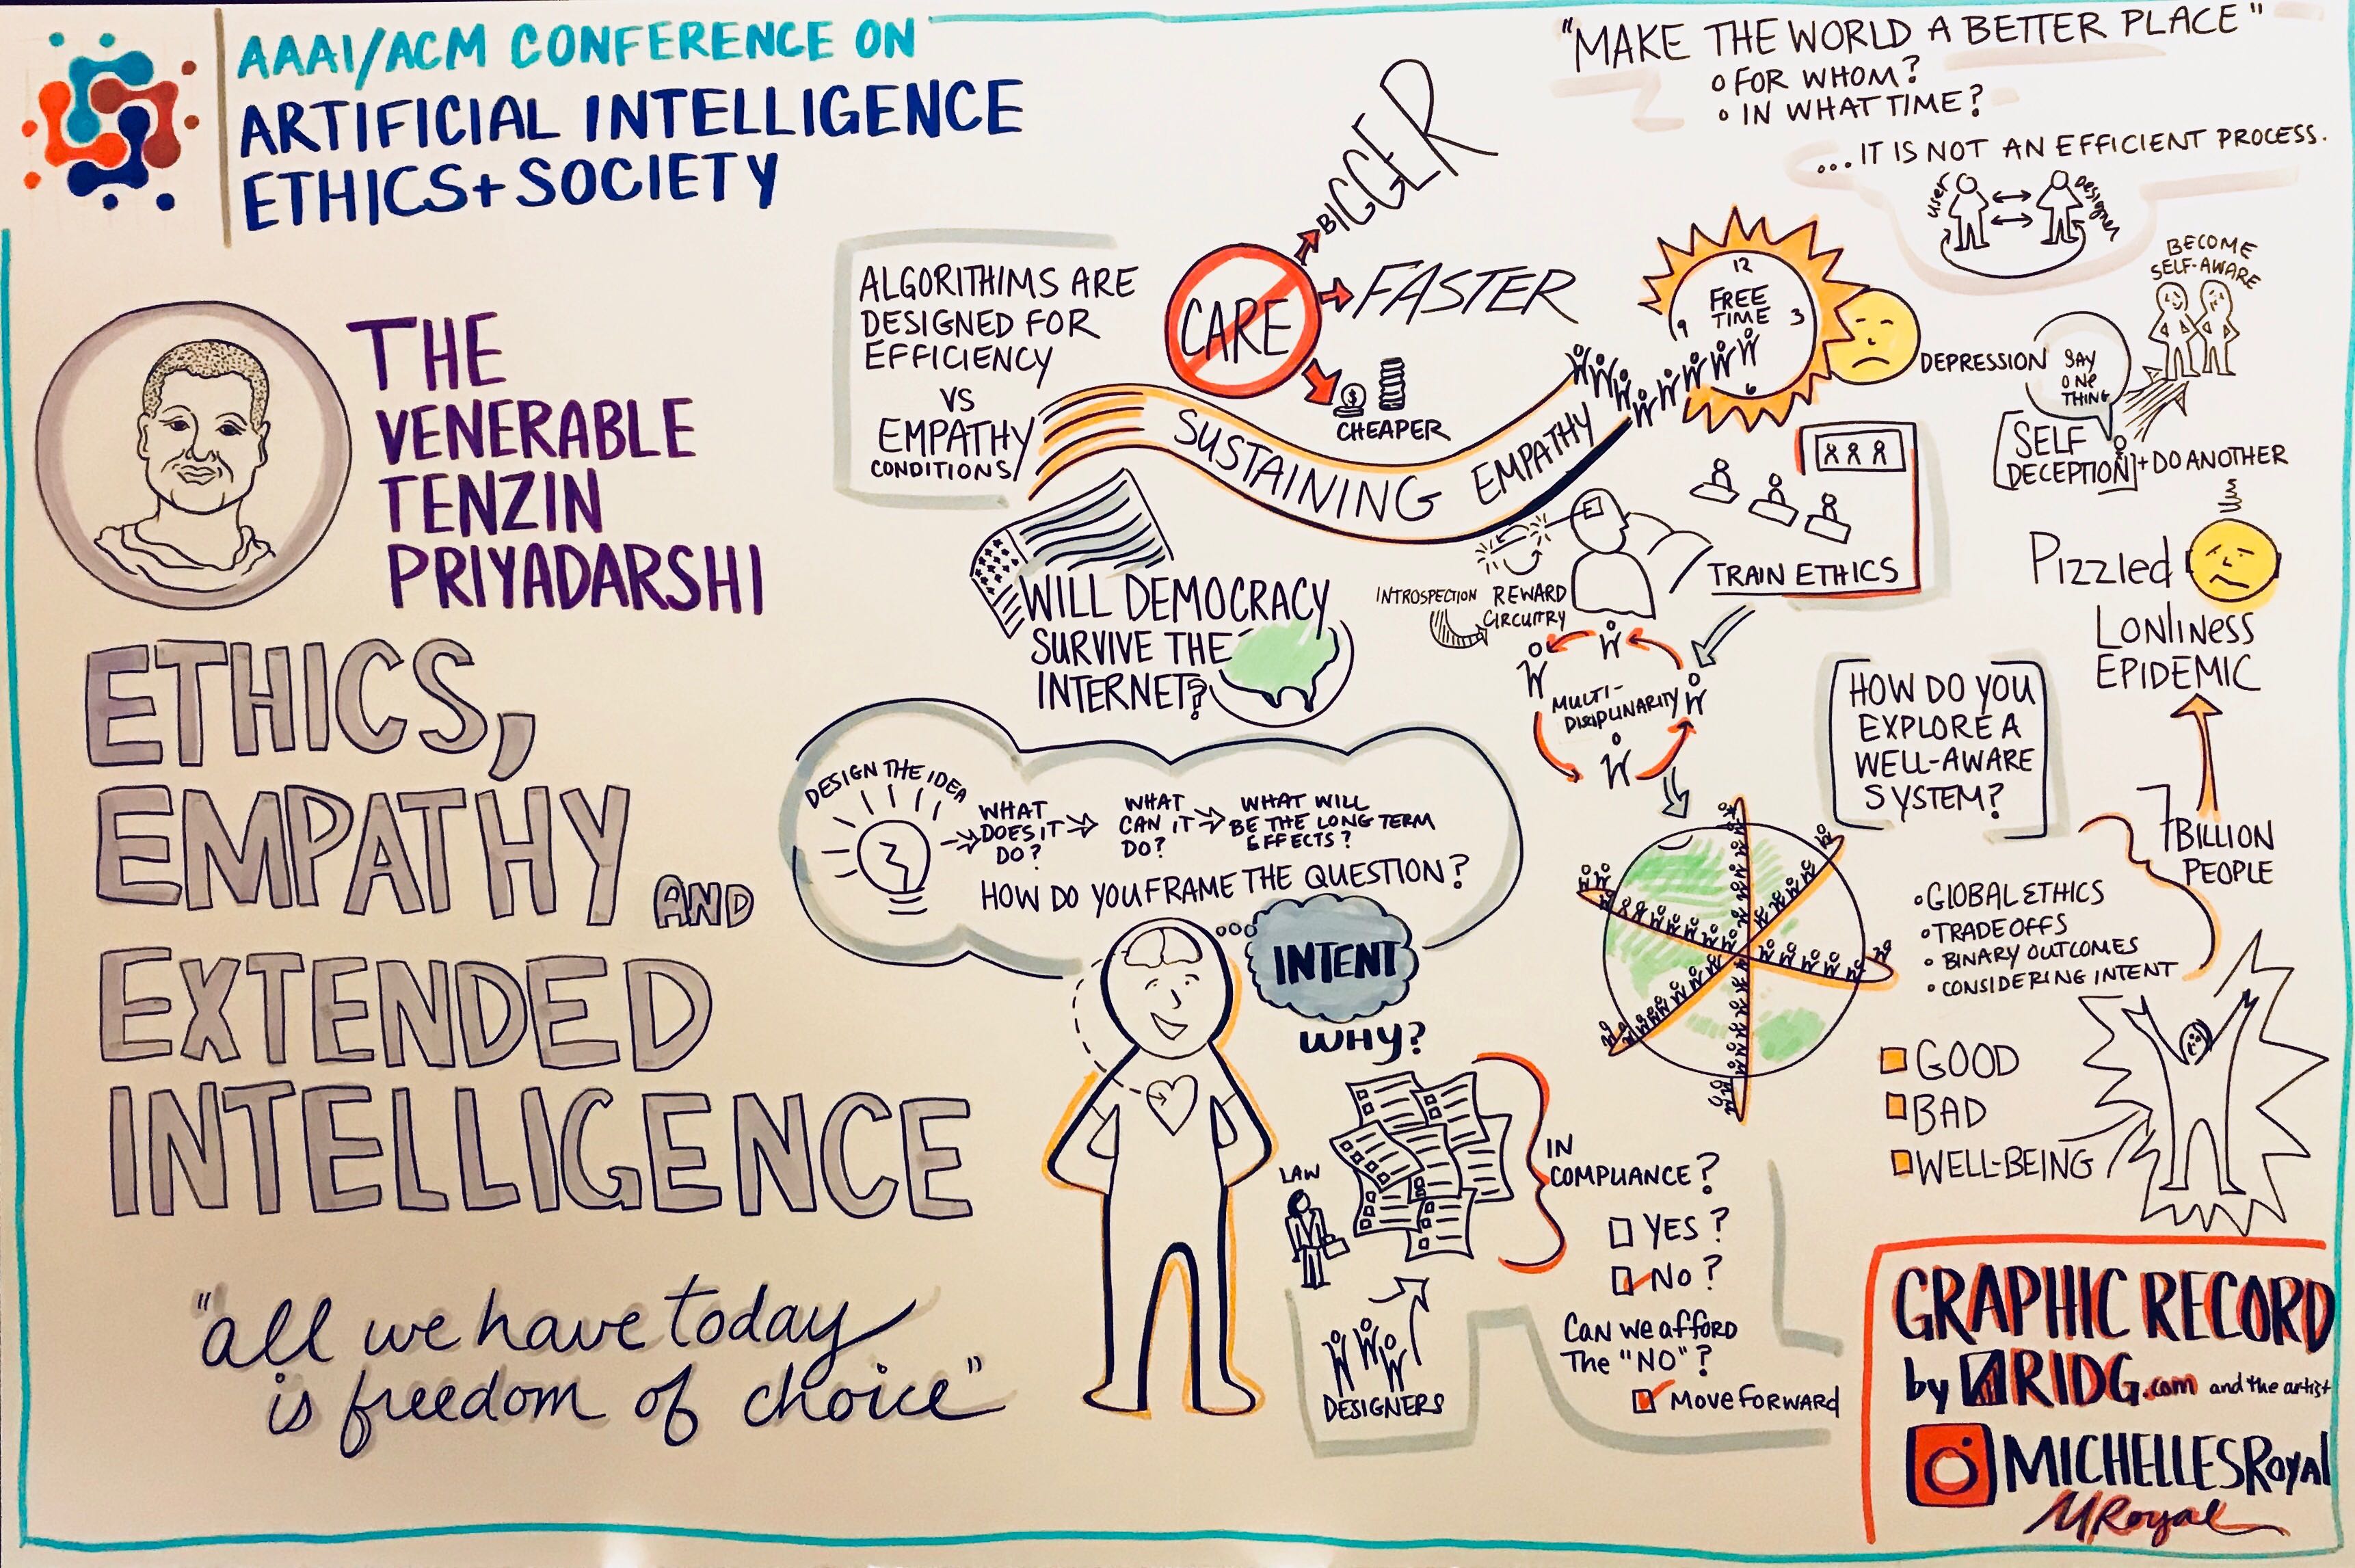 AAAI/ACM CONFERENCE ON
ARTIFICIAL INTELLIGENCE
ETHICS+SOCIETY
THE
VENERABLE
TENZIN
PRIYADARSHI
ETHICS,
EMPATHY AND
EXTENDED
INTELLIGENCE
"all we have today
is freedom of choice"
ALGORITHIMS ARE
DESIGNED FOR
EFFICIENCY
VS
EMPATHY
CONDITIONS
CARE
BIGGER
FASTER
$
CHEAPER
SUSTAINING EMPATHY
12
FREE
TIME
9
3
6
DEPRESSION
"MAKE THE WORLD A BETTER PLACE"
FOR WHOM?
IN WHAT TIME?
...IT IS NOT AN EFFICIENT PROCESS.
user
Designer
BECOME
SELF-AWARE
SAY
ONE
THING
SELF
DECEPTION
+ DO ANOTHER
Pizzled
LONLINESS
EPIDEMIC
7 BILLION
PEOPLE
WILL DEMOCRACY
SURVIVE THE
INTERNET?
INTROSPECTION
REWARD
CIRCUITRY
TRAIN ETHICS
MULTI-
DISCIPLINARITY
HOW DO YOU
EXPLORE A
WELL-AWARE
SYSTEM?
GLOBAL ETHICS
TRADEOFFS
BINARY OUTCOMES
CONSIDERING INTENT
GOOD
BAD
WELL-BEING
DESIGN THE IDEA
WHAT
DOES IT
DO?
WHAT
CAN IT
DO?
WHAT WILL
BE THE LONG TERM
EFFECTS?
HOW DO YOU FRAME THE QUESTION?
INTENT
WHY?
LAW
DESIGNERS
IN
COMPLIANCE?
YES?
NO?
CAN WE AFFORD
THE "NO"?
MOVE FORWARD
GRAPHIC RECORD
by RIDG.com and the artist
MICHELLESROYAL
MRoyal